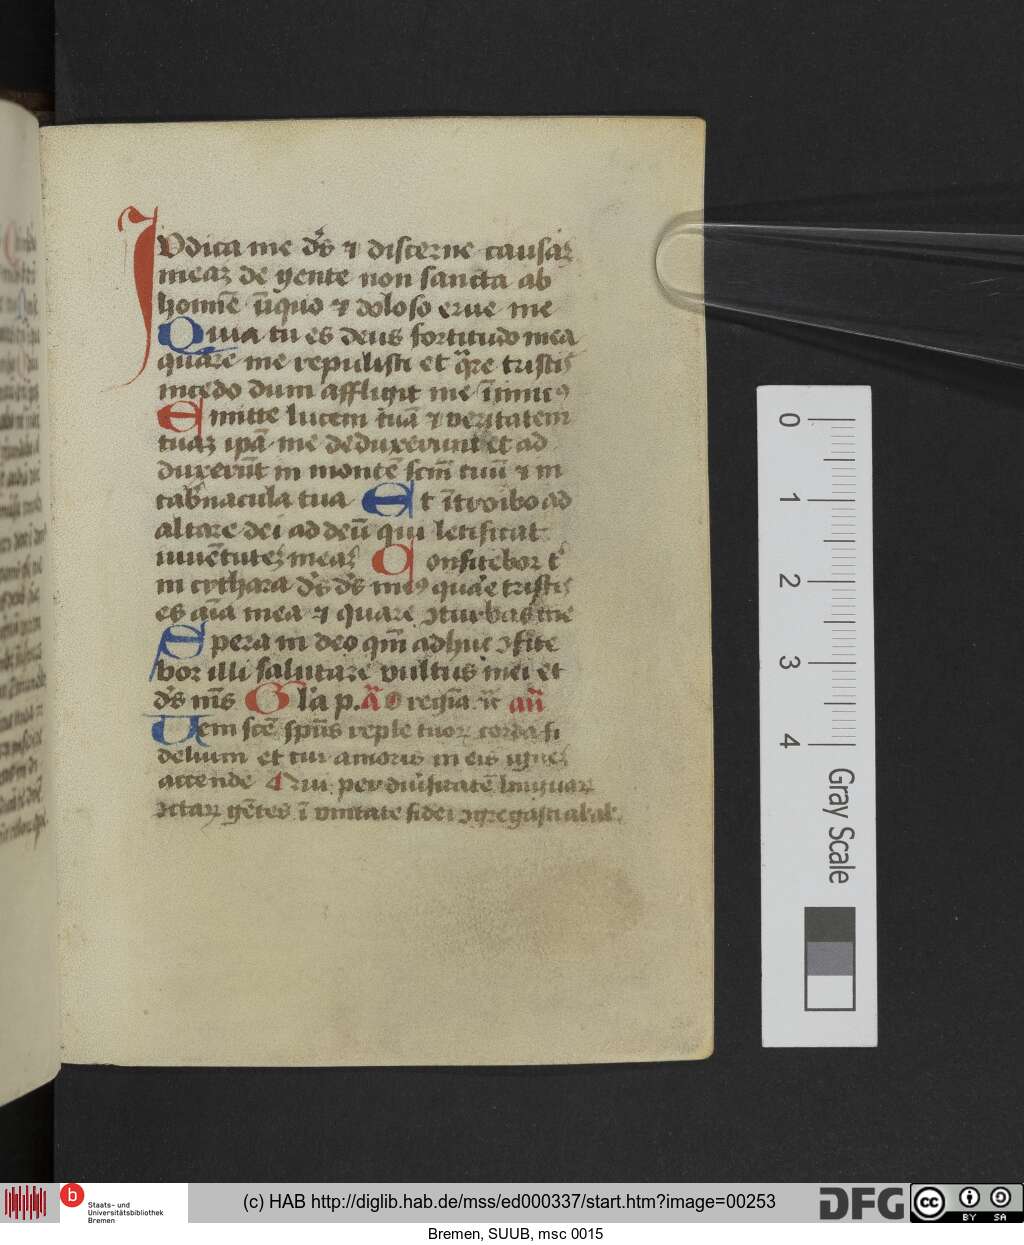 IVdica me dẜ ⁊ discerne causaꝫ
meaꝫ de gente non sancta ab
homīe ūquo ⁊ doloso erue me
Quia tu es deus fortitudo mea
quare me repulisti et q̄re tristis
incedo dum affligit me īimicꝰ
Emitte lucem tuā ⁊ veritatem
tuaꝫ ipā me deduxerunt et ad
duxerūt in montē scm̄ tuū ⁊ in
tab̓nacula tua Et ītroibo ad
altare dei ad deū qui letificat
iuuētuteꝫ meaꝫ Confitebor t̓
in cythara dẜ dẜ meꝰ quare tristis
es aīa mea ⁊ quare ↄturbas me
Spera in deo qm̄ adhuc ↄfite
bor illi salutare vultus mei et
dẜ mẜ Gl̓a p. regīa añ
Veni scē spūs reple tuoꝝ corda fi
delium et tui amoris in eis igneꝫ
accende Qui per diu̓sitatē linguaꝝ
ↄctaꝝ gētes ī vnitate fidei ↄgregasti al al
0
1
2
3
4
Gray Scale
b
Staats- und
Universitätsbibliothek
Bremen
(c) HAB http://diglib.hab.de/mss/ed000337/start.htm?image=00253
DFG
cc
BY SA
Bremen, SUUB, msc 0015